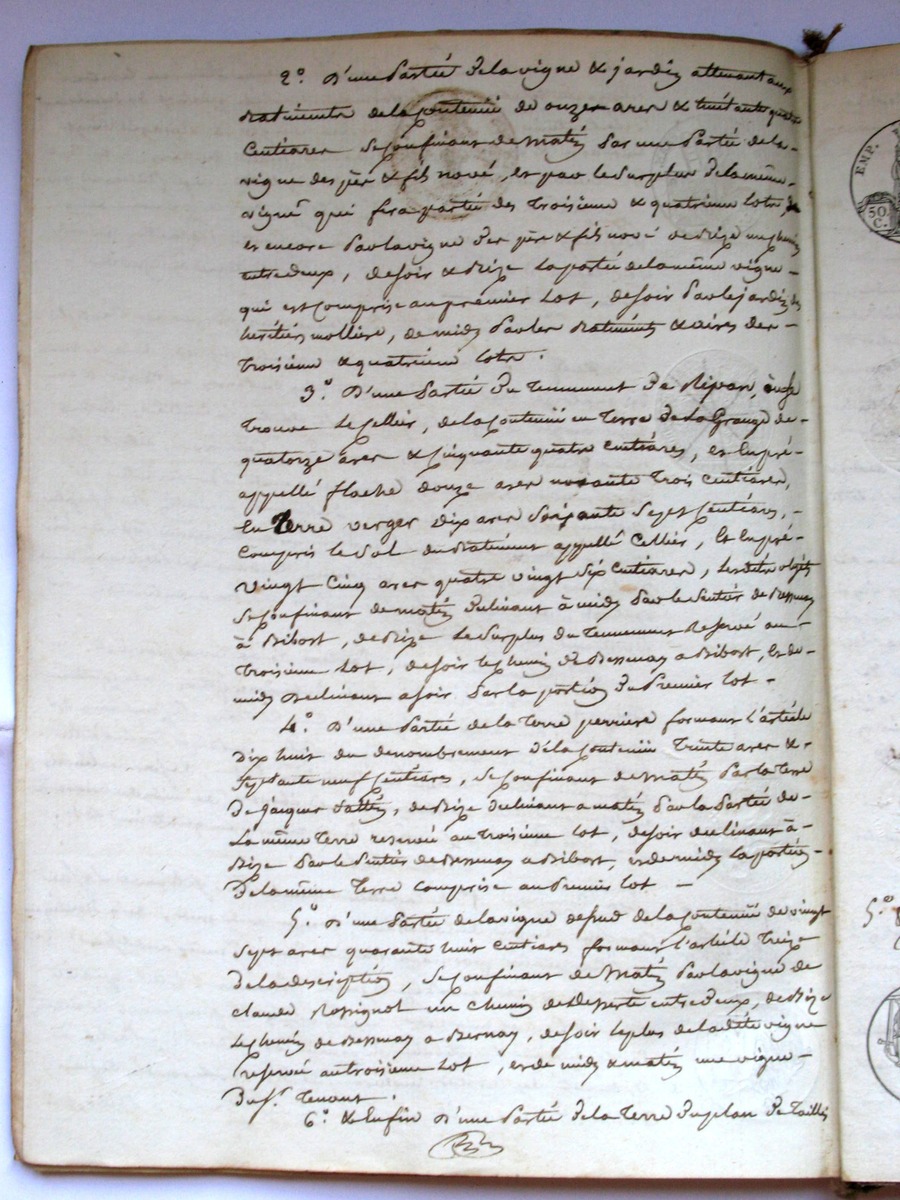 2.° D'une Partie de la vigne & jardin attenant aux
Batiments de la Contenüe de onze ares & huitante quatre
Centiares se Confinant de Matin par une Partie de la
vigne des père & fils nové, et par le Surplus de la même
vigne qui fera partie des troisieme & quatrieme lots,
et encore Par la vigne des père & fils nové de Bize un chemin
entre deux, de soir & Bize la partie de la même vigne
qui est Comprise au premier Lot, de soir Par le jardin des
heritiers molliere, de midy Par les Batiments & aires des
troisieme & quatrieme lots.
3.° D'une Partie du tenement de, où se
trouve le Cellier, de la Contenüe en Terre de La Grange de
quatorze ares & Cinquante quatre Centiares, et En pré
appellé flache douze ares nonante trois Centiares,
En Terre verger dix ares Soixante Sept Centiares,
Compris le Sol du Batiment appellé Cellier, Et En pré
vingt Cinq ares quatre vingt Six Centiares, les dits objets
se Confinant de matin declinant à midy Par le Sentier de Bessenay
à Bibost, de Bize le Surplus du tenement Reservé au
troisieme Lot, de soir le Chemin de Bessenay a Bibost, Et de
midy declinant a soir Par la portion du Premier Lot.
4.° D'une Partie de la Terre perriere formant l'article
Dix huit du denombrement de la Contenüe Trente ares &
Septante neuf Centiares, se Confinant de Matin Par la Terre
de jacques, de Bize declinant a matin Par la Partie de
La même Terre reservée au troisieme Lot, de soir declinant à
Bize Par le Sentier de Bessenay a Bibost, et de midy La portion
de la même Terre Comprise au Premier Lot
5.° D'une Partie de la vigne de la Contenüe de vingt
Sept ares quarante huit Centiares formant l'article Treize
de la description, se Confinant de Matin Par la vigne de
claude Rossignol un Chemin de desserte entre deux, de Bize
le Chemin de Bessenay a Bernay, de soir le plus de la dite vigne
reservée au troisieme Lot, et de midy & matin une vigne
du S.r Tenant.
6.° & Enfin D'une Partie de la Terre du plan de
EMP.
50.
C.
5.°